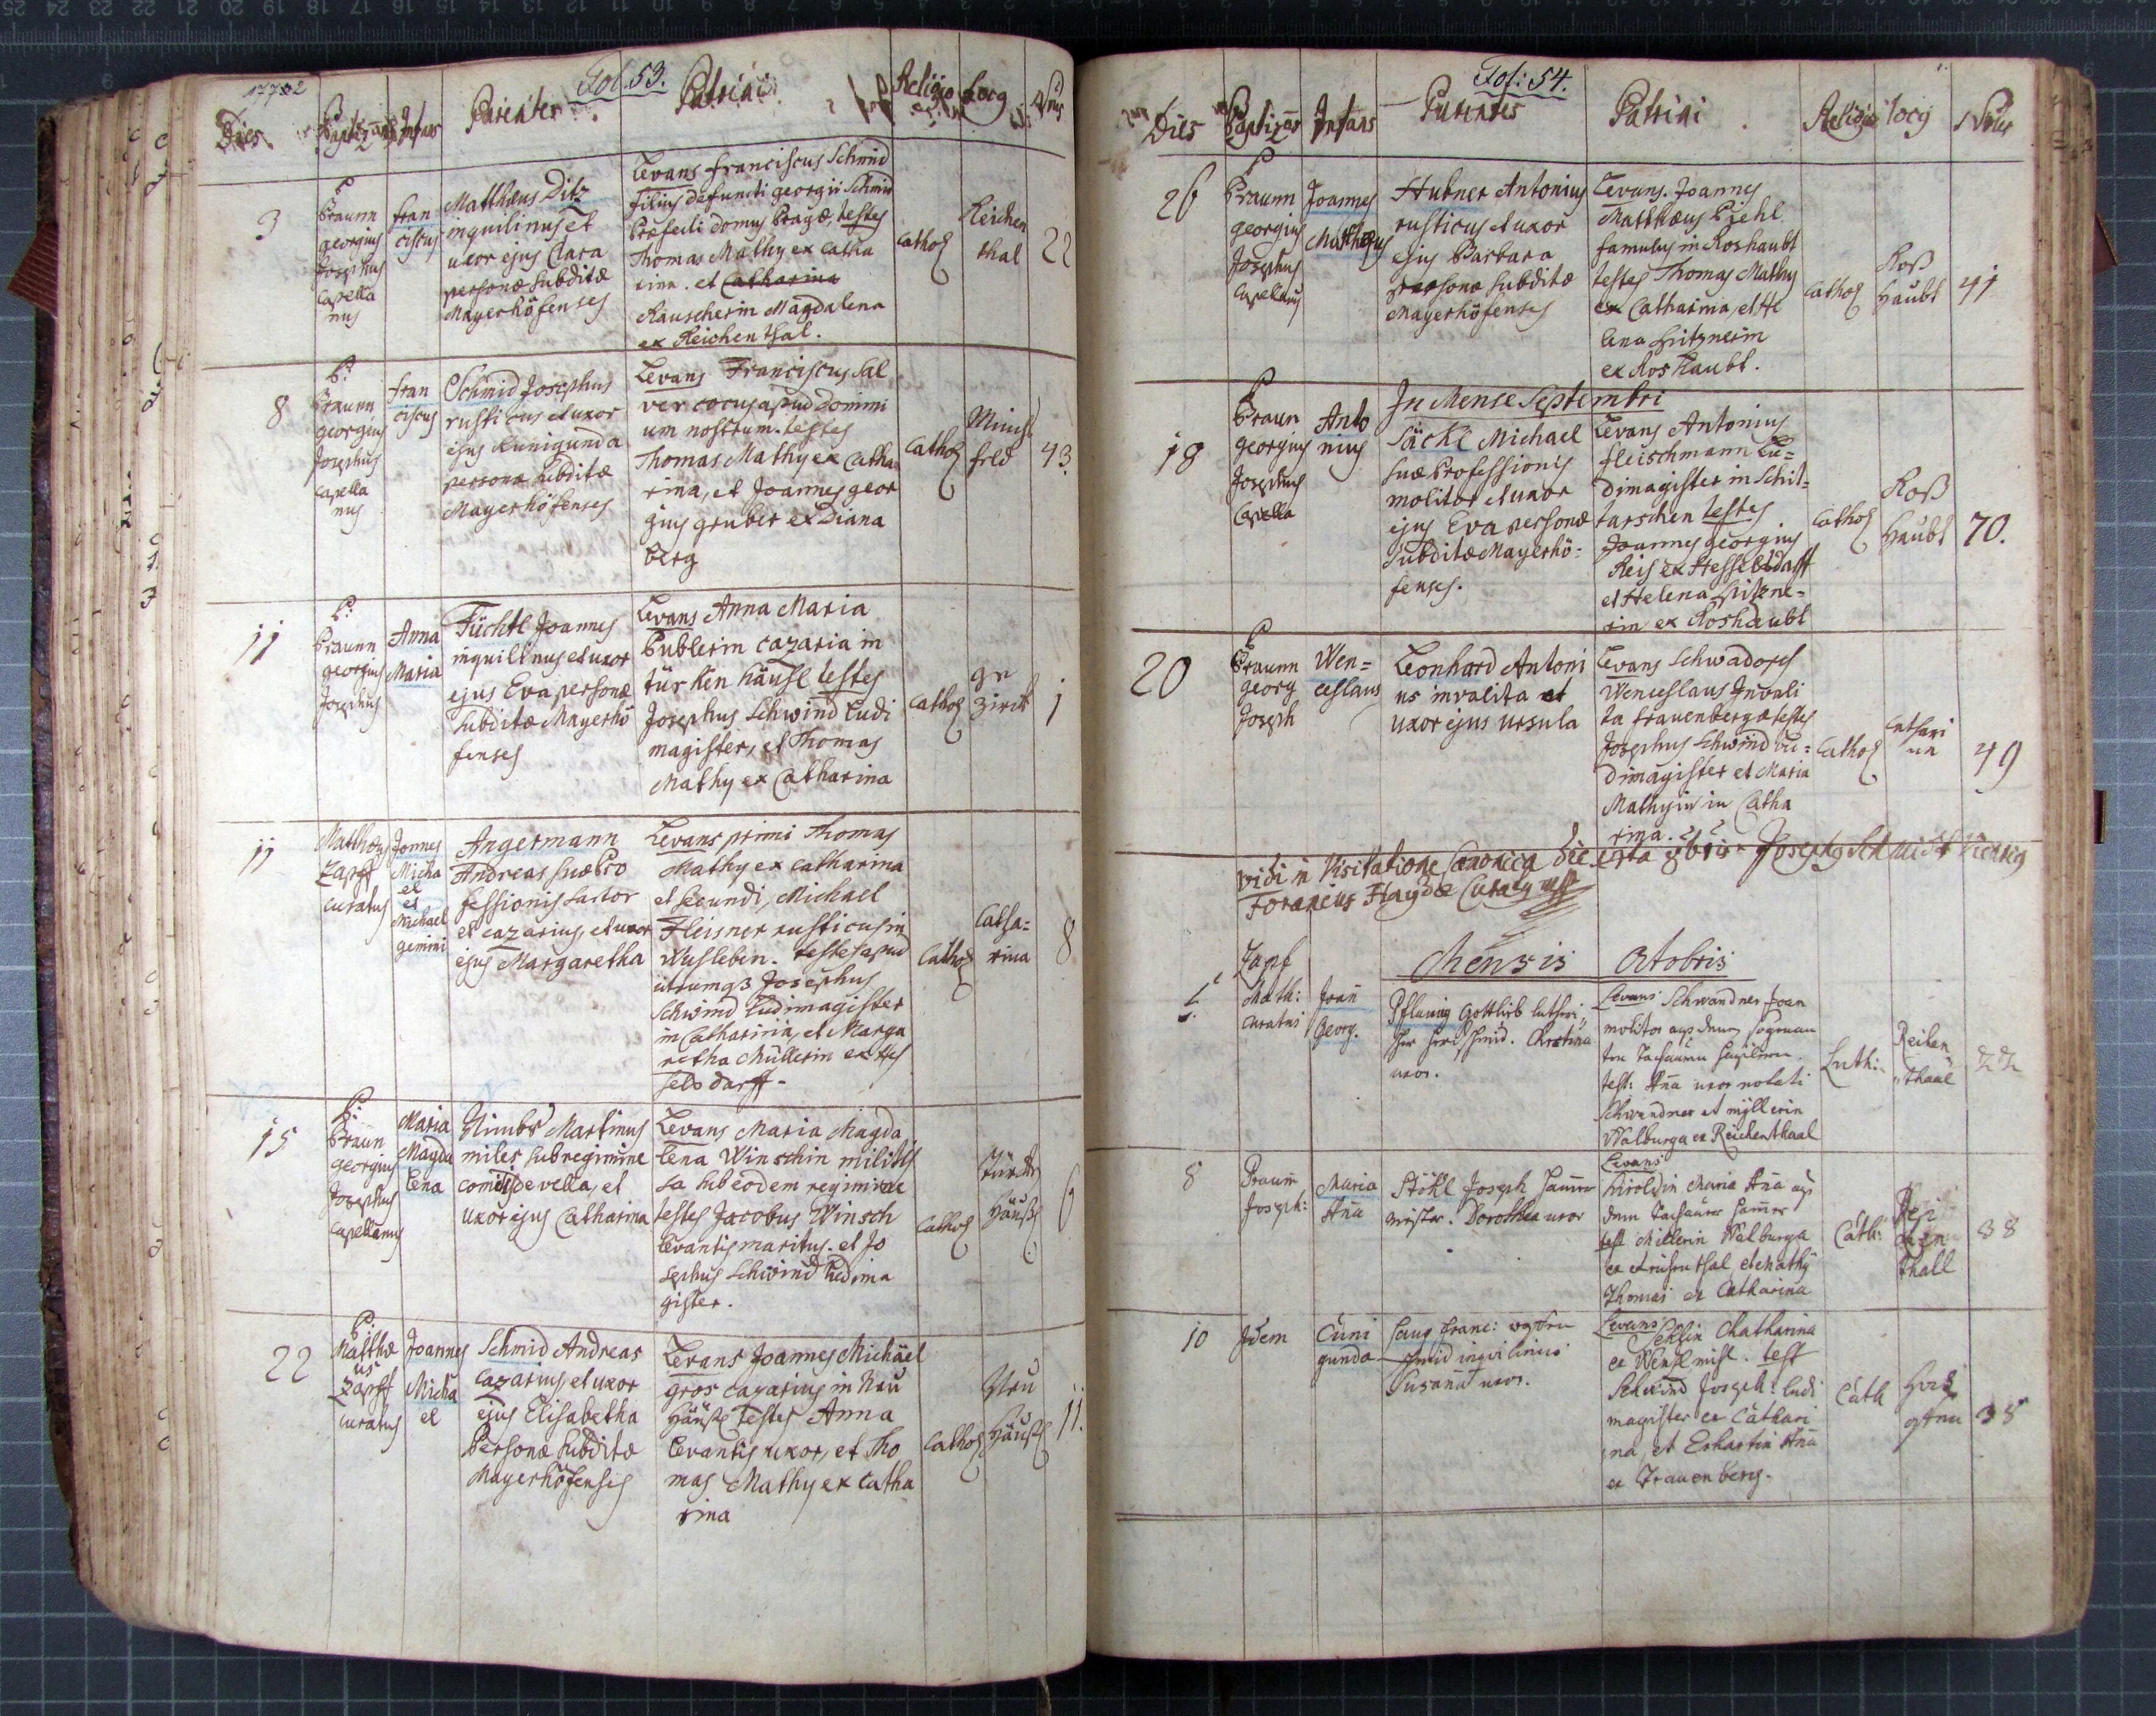 Fol. 53.
Dies Baptizans Infans Parentes Patrini Religio Locus Nrus
3
P. Braunn georgius Josephus Capellanus
Franciscus
Matthæus Ditz
inquilinus et
uxor ejus Clara
personæ subditæ
Mayerhöfenses
Levans Franciscus Schmid
filius defuncti georgii Schmid
Præfecti domus Pragæ, testes
Thomas Mathy ex Catha
rina. et Catharina
Rauscherin Magdalena
ex Reichenthal.
Cathol
Reichen
thal
22
8
P. Braunn georgius Josephus Capellanus
Franciscus
Schmid Josephus
rusticus et uxor
ejus Kunigunda
personæ subditæ
Mayerhöfenses
Levans Franciscus Sal
ver cocus apud Domini
um nostrum. testes
Thomas Mathy ex Catha
rina, et Joannes geor
gius gruber ex Diana
berg
Cathol
43.
11
P. Braunn georgius Josephus
Anna Maria
Füchtl Joannes
inquilinus et uxor
ejus Eva personæ
subditæ Mayerhö
fenses
Levans Anna Maria
Bublerin cazaria in
türken häusl testes
Josephus Schwind Ludi
magister, et Thomas
Mathy ex Catharina
Cathol
1
11
Matthæus Zapff curatus
Joannes Michael et Michael gemini
Angermann
Andreas suæ Pro
fessionis sartor
et cazarius, et uxor
ejus Margaretha
Levans primi Thomas
Mathy ex Catharina
et secundi, Michael
Fleisner rusticus in
Wusleben. testes apud
utrumqз Josephus
Schwind Ludimagister
in Catharina, et Marga
retha Müllerin ex Hes
selsdorff.
Cathol
Catha=
rina
8
15
P: Braun georgius Josephus Capellanus
Maria Magdalena
Nimbs Martinus
miles sub regimine
comitis de vella, et
uxor ejus Catharina
Levans Maria Magda
lena Winschin militis
sa sub eodem regimine
testes Jacobus Winsch
levantis maritus. et Jo
sephus Schwind Ludima
gister.
Cathol
6
22
P: Matthæus Zapff curatus
Joannes Michael
Schmid Andreas
cazarius, et uxor
ejus Elisabetha
Personæ subditæ
Mayerhöfensis
Levans Joannes Michäel
gros cazarius in Neu
Häusl testes Anna
levantis uxor, et Tho
mas Mathy ex Catha
rina
Cathol
Neu
Häusl
11.
Fol: 54.
Dies Baptizans Infans Parentes Patrini Religio locus Nrus
26
P. Braunn georgius Josephus Capellanus
Joannes Matthæus
Hubner Antonius
rusticus et uxor
ejus Barbara
personæ subditæ
Mayerhöfenses
Levans. Joannes
Matthæus Piehl
famulus in Roshaubt
testes Thomas Mathy
ex Catharina, et He
lena
ex Roshaubt.
Cathol
Roß
Haubt
41
In Mense Septembri
18
P. Braun georgius Josephus Capella
Antonius
Säckl Michael
suæ Professionis
molitor et uxor
ejus Eva personæ
subditæ Mayerhö=
fenses.
Levans Antonius
Fleischmann Lu=
dimagister in Schit=
tarschen testes
Joannes georgius
Reis ex Hesselsdorff
et Helena
rin ex Roshaubt
Cathol
Roß
Haubt
70.
20
P Braunn georg Joseph
Wen=
ceslaus
Leonhard Antoni
us invalita et
uxor ejus Ursula
Levans
Wenceslaus Invali
ta Frauenbergæ testes
Josephus Schwind Lu=
dimagister et Maria
Mathyin in Catha
rina.
Cathol
Cathari
na
49
Vidi in Visitatione Canonica die 8bris Josephus Schmidt Vicarius
Foraneus Haydæ
Mensis Octobris
Zapf Math: curatus
Joan Georg.
Pflaung Gottlieb
Christina
uxor.
Levans Schwandner Joan
molitor
test: Aña uxor notati
Schwandner et myllerin
Walburga ex Reichenthaal
Luth:
Reichen
thaal
22
8
Praun Joseph:
Maria Aña
Stökl Joseph Hammer
meister. Dorothea uxor
Levans
Maria Aña
test Millerin Walburga
ex Reichenthal et Mathy
Thomas ex Catharina
Cath:
Reichen
thall
38
10
Idem
Cuni
gunda
Franc:
Susana uxor.
Levans
Catharina
test
Schwind Joseph: ludi
magister ex Cathari
na, et Aña
ex Frauenberg.
Cath
38